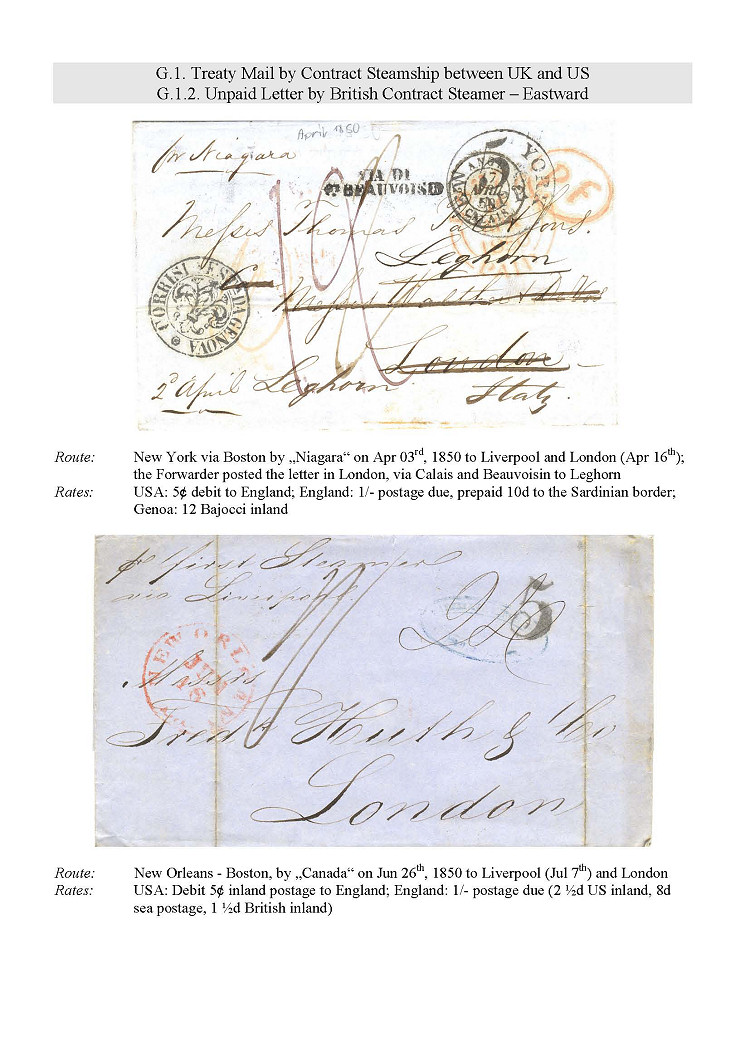 G.1. Treaty Mail by Contract Steamship between UK and US
G.1.2. Unpaid Letter by British Contract Steamer – Eastward
April 1850
pr Niagara
VIA DI
BEAUVOISIN
YORK
5
ANGL.
17
AVRIL
50
CALAIS
PF
Messrs Thomas
Leghorn
Messrs
London
2d April Leghorn
Italy
CORRISP ESTERA DA GENOVA
Route: New York via Boston by „Niagara“ on Apr 03rd, 1850 to Liverpool and London (Apr 16th);
the Forwarder posted the letter in London, via Calais and Beauvoisin to Leghorn
Rates: USA: 5¢ debit to England; England: 1/- postage due, prepaid 10d to the Sardinian border;
Genoa: 12 Bajocci inland
pr first Steamer
via Liverpool
5
NEW ORLEANS
JUN
Messrs
Fredk Huth & Co
London
Route: New Orleans - Boston, by „Canada“ on Jun 26th, 1850 to Liverpool (Jul 7th) and London
Rates: USA: Debit 5¢ inland postage to England; England: 1/- postage due (2 ½d US inland, 8d
sea postage, 1 ½d British inland)